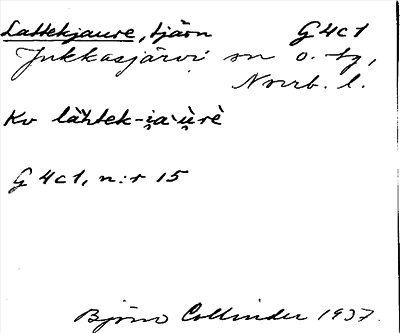 Lattekjaure, tjärn G4c1
Jukkasjärvi sn o. tg,
Norrb. l.
Kv lat̀tek-i̯a`u̯rè
G 4c1, n:r 15
Björn Collinder 1937.